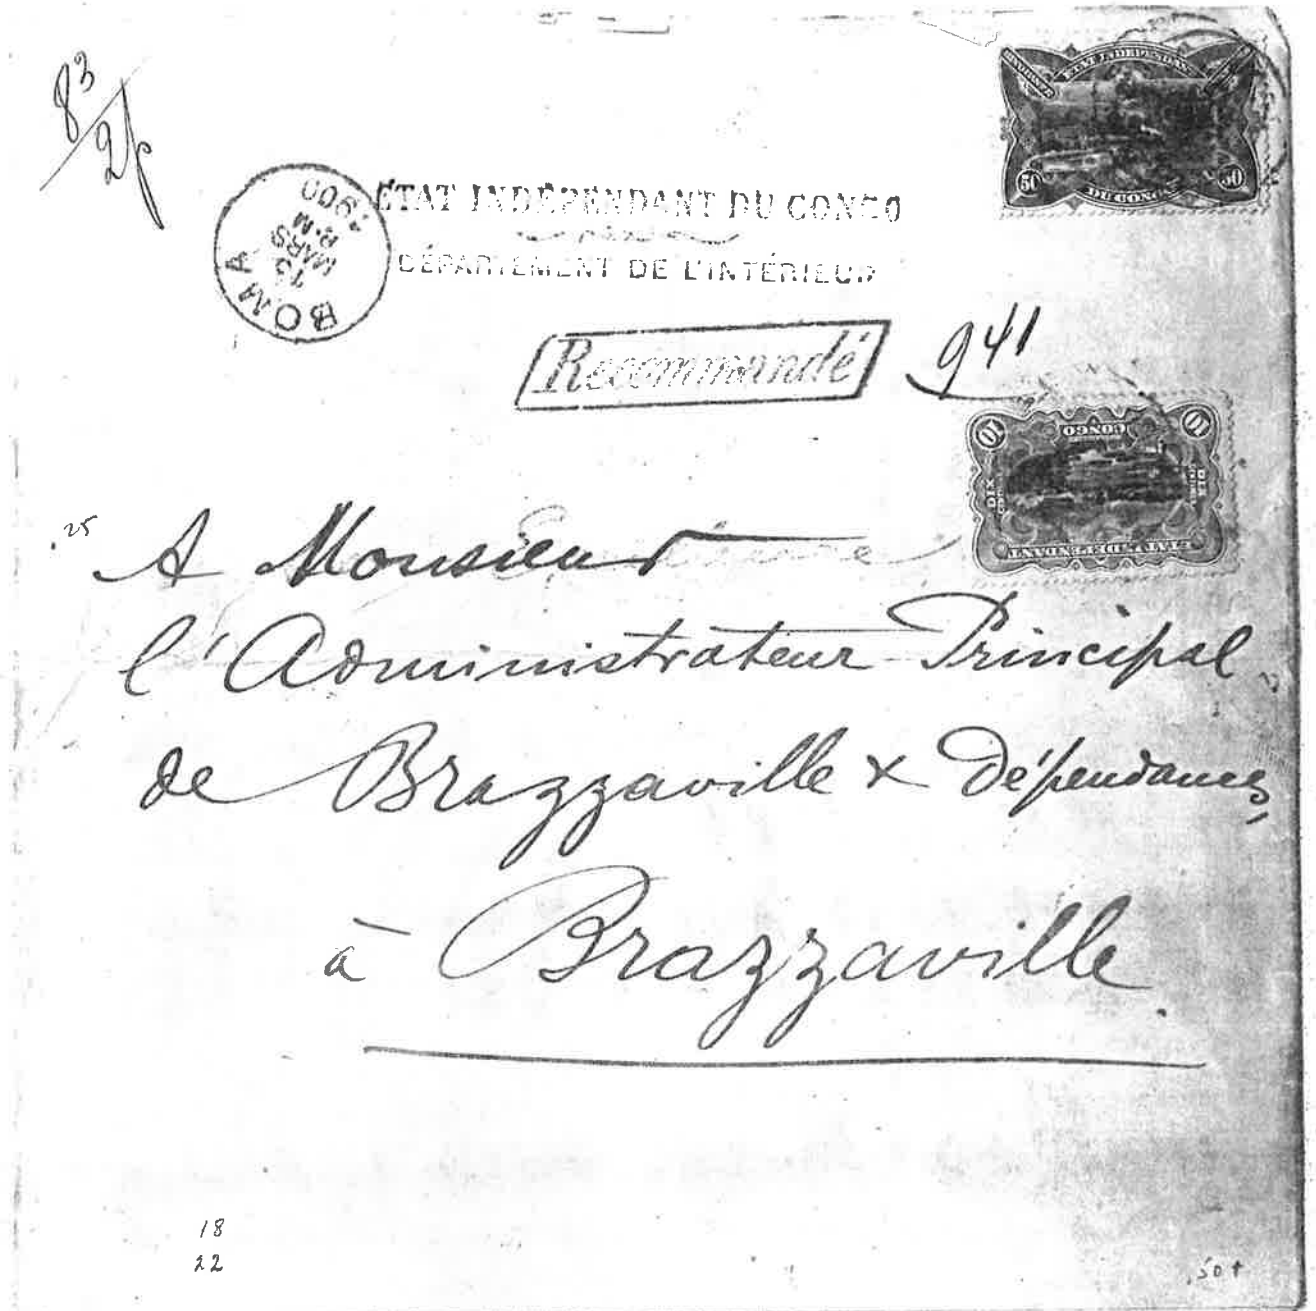 83
2f
ÉTAT INDÉPENDANT DU CONGO
DÉPARTEMENT DE L'INTÉRIEUR
BOMA
13
MARS
1900
Recommandé
941
ÉTAT INDÉPENDANT
DU CONGO
50
50
10
10
CONGO
DIX
DIX
ÉTAT INDÉPENDANT
25
A Monsieur
l'Administrateur Principal
de Brazzaville & Dépendances
à Brazzaville
18
22